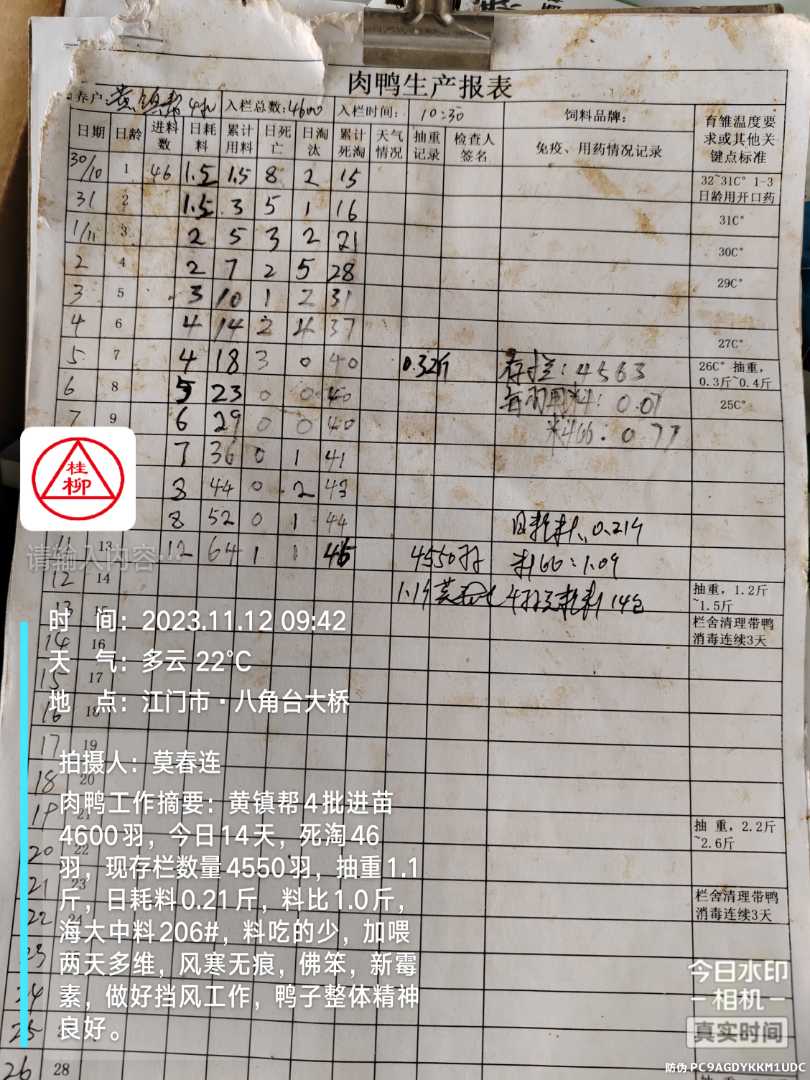 肉鸭生产报表
养户: 黄镇帮 4批 入栏总数: 4600 入栏时间: 10:30 饲料品牌: 育雏温度要求或其他关键点标准
日期 日龄 进料数 日耗料 累计用料 日死亡 日淘汰 累计死淘 天气情况 抽重记录 检查人签名 免疫、用药情况记录
30/10 1 46 1.5 1.5 8 2 15 32~31C° 1-3日龄用开口药
31 2 1.5 3 5 1 16 31C°
1/11 3 2 5 3 2 21 30C°
2 4 2 7 2 5 28 29C°
3 5 3 10 1 2 31
4 6 4 14 2 4 37 27C°
5 7 4 18 3 0 40 0.32斤 存栏: 4563 26C° 抽重, 0.3斤~0.4斤
6 8 5 23 0 0 40 每羽用料: 0.07 25C°
7 9 6 29 0 0 40 料比: 0.77
7 36 0 1 41
8 44 0 2 43
8 52 0 1 44 日耗料 0.21斤
11 13 12 64 1 1 46 4550羽 料比: 1.09
12 14 1.1斤 4批 耗料14包 抽重, 1.2斤~1.5斤
13 15 栏舍清理带鸭消毒连续3天
14 16
15 17
16 18
17 19
18 20
19 21 抽重, 2.2斤~2.6斤
20 22
21 23 栏舍清理带鸭消毒连续3天
22 24
23
24
25
26 28
桂柳
请输入内容…
时 间: 2023.11.12 09:42
天 气: 多云 22℃
地 点: 江门市·八角台大桥
拍摄人: 莫春连
肉鸭工作摘要: 黄镇帮4批进苗
4600羽, 今日14天, 死淘46
羽, 现存栏数量4550羽, 抽重1.1
斤, 日耗料0.21斤, 料比1.0斤,
海大中料206#, 料吃的少, 加喂
两天多维, 风寒无痕, 佛笨, 新霉
素, 做好挡风工作, 鸭子整体精神
良好。
今日水印
相机
真实时间
防伪 PC9AGDYKKM1UDC